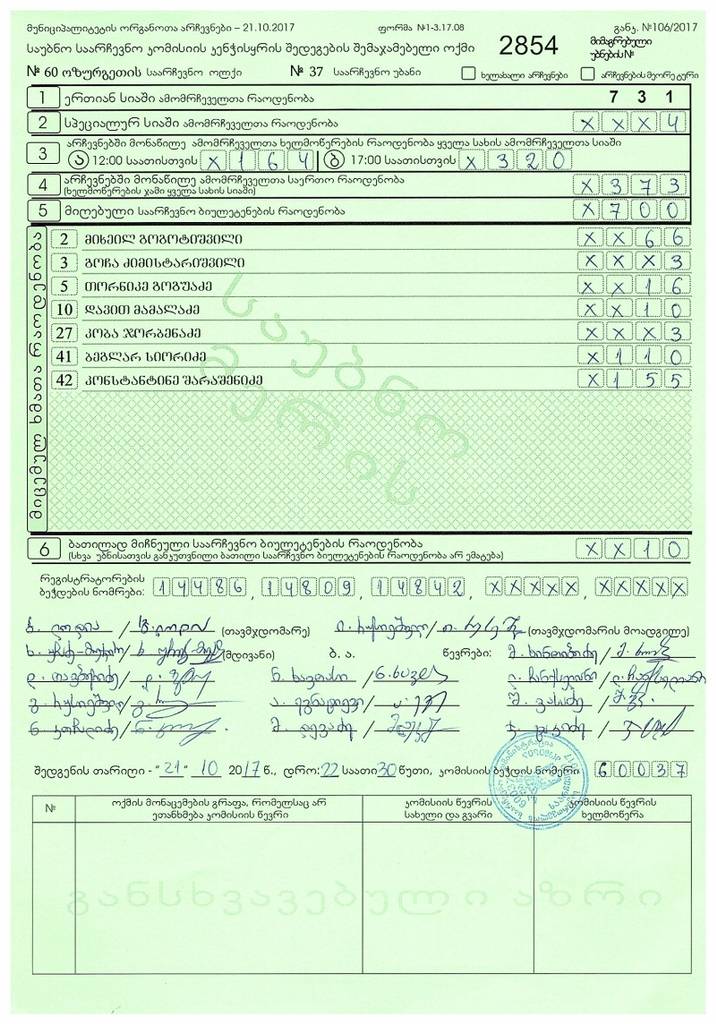 მუნიციპალიტეტის ორგანოთა არჩევნები – 21.10.2017 ფორმა №1-3.17.08 განკ. №106/2017
საუბნო საარჩევნო კომისიის კენჭისყრის შედეგების შემაჯამებელი ოქმი 2854 მიმაგრებული უბნების №
№ 60 ოზურგეთის საარჩევნო ოლქი № 37 საარჩევნო უბანი ხელახალი არჩევნები არჩევნების მეორე ტური
1 ერთიან სიაში ამომრჩეველთა რაოდენობა 7 3 1
2 სპეციალურ სიაში ამომრჩეველთა რაოდენობა X X X 4
3 არჩევნებში მონაწილე ამომრჩეველთა ხელმოწერების რაოდენობა ყველა სახის ამომრჩეველთა სიაში
ა 12:00 საათისთვის X 1 6 4 ბ 17:00 საათისთვის X 3 2 0
4 არჩევნებში მონაწილე ამომრჩეველთა საერთო რაოდენობა X 3 7 3
(ხელმოწერების ჯამი ყველა სახის სიაში)
5 მიღებული საარჩევნო ბიულეტენების რაოდენობა X 7 0 0
მიცემულ ხმათა რაოდენობა
2 მიხეილ გოგოტიშვილი X X 6 6
3 გოჩა ძიმისტარიშვილი X X X 3
5 თორნიკე გოგუაძე X X 1 6
10 დავით მამალაძე X X 1 0
27 კობა ჯორბენაძე X X X 3
41 ბეგლარ სიორიძე X 1 1 0
42 კონსტანტინე შარაშენიძე X 1 5 5
საუბნო
მერის
6 ბათილად მიჩნეული საარჩევნო ბიულეტენების რაოდენობა X X 1 0
(სხვა უბნისათვის განკუთვნილი ბათილი საარჩევნო ბიულეტენების რაოდენობა არ ემატება)
რეგისტრატორების ბეჭდების ნომრები: 14486, 14809, 14842, XXXXX, XXXXX
(თავმჯდომარე) (თავმჯდომარის მოადგილე)
(მდივანი) ბ. ა. წევრები:
შედგენის თარიღი - "21" 10 2017 წ., დრო: 22 საათი 30 წუთი, კომისიის ბეჭდის ნომერი 6 0 0 3 7
№ ოქმის მონაცემების გრაფა, რომელსაც არ ეთანხმება კომისიის წევრი კომისიის წევრის სახელი და გვარი კომისიის წევრის ხელმოწერა
განსხვავებული აზრი